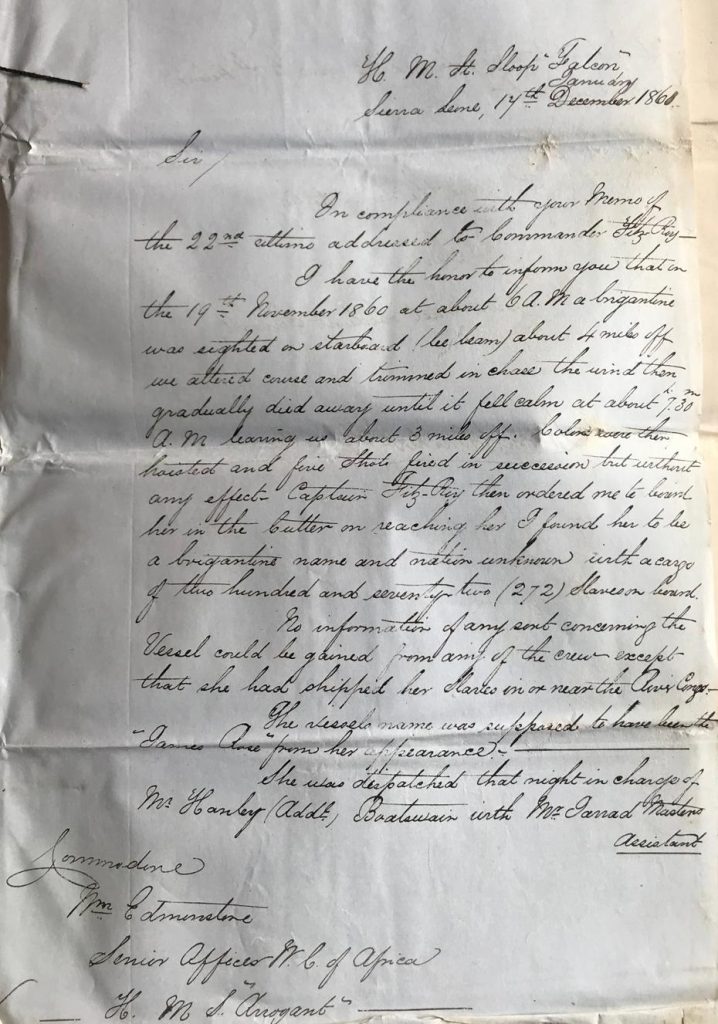 H. M. St. Sloop "Falcon"
January
Sierra Leone, 17th December 1860.
Sir/
In compliance with your Memo of
the 22nd ultimo addressed to Commander Fitz-Roy—
I have the honor to inform you that on
the 19th November 1860 at about 6 A.M a brigantine
was sighted on starboard (lee beam) about 4 miles off
we altered course and trimmed in chase the wind then
gradually died away until it fell calm at about 7.30
A.M leaving us about 3 miles off. Colors were then
hoisted and five Shots fired in succession but without
any effect- Captain Fitz-Roy then ordered me to board
her in the Cutter on reaching her I found her to be
a brigantine name and nation unknown with a cargo
of two hundred and seventy-two (272) Slaves on board.
No information of any sort concerning the
Vessel could be gained from any of the crew except
that she had shipped her Slaves in or near the River Congo-
The vessels name was supposed to have been the
"James Rose" from her appearance.-
She was despatched that night in charge of
Mr Hanley (Addl) Boatswain with Mr Jarrad Masters
Assistant
Commodore
Wm Edmonstone
Senior Officer W. C. of Africa
H. M. S. "Arrogant"